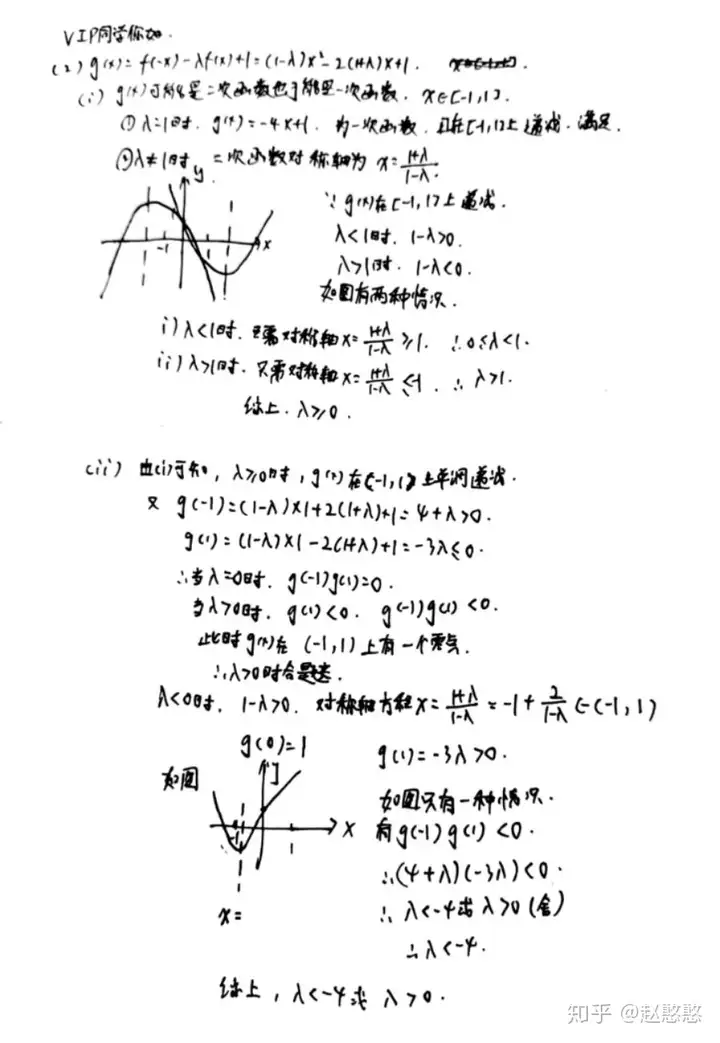 VIP同学你好.
(2) g(x)=f(-x)-λf(x)+1=(1-λ)x²-2(1+λ)x+1.
(i) g(x)可能是二次函数也可能是一次函数. x∈[-1,1].
① λ=1时. g(x)=-4x+1. 为一次函数. 且在[-1,1]上递减. 满足.
② λ≠1时 二次函数对称轴为 x=\frac{1+λ}{1-λ}.
y
-1
x
∵ g(x)在[-1,1]上递减.
λ<1时. 1-λ>0.
λ>1时. 1-λ<0.
如图有两种情况.
i) λ<1时. 只需对称轴x=\frac{1+λ}{1-λ}≥1. ∴0≤λ<1.
ii) λ>1时. 只需对称轴x=\frac{1+λ}{1-λ}≤-1 ∴ λ>1.
综上. λ≥0.
(ii) 由(i)可知, λ≥0时, g(x)在[-1,1]上单调递减.
又 g(-1)=(1-λ)×1+2(1+λ)+1=4+λ>0.
g(1)=(1-λ)×1-2(1+λ)+1=-3λ≤0.
∴当λ=0时. g(-1)g(1)=0.
当λ>0时. g(1)<0. g(-1)g(1)<0.
此时g(x)在 (-1,1)上有一个零点.
∴λ>0时合题意.
λ<0时. 1-λ>0. 对称轴方程x=\frac{1+λ}{1-λ}=-1+\frac{2}{1-λ}∈(-1,1)
g(0)=1 g(1)=-3λ>0.
如图
y
x
1
x=
如图只有一种情况.
有g(-1)g(1)<0.
∴(4+λ)(-3λ)<0
∴ λ<-4或λ>0(舍)
∴λ<-4.
综上, λ<-4或 λ>0.
知乎 @赵憨憨